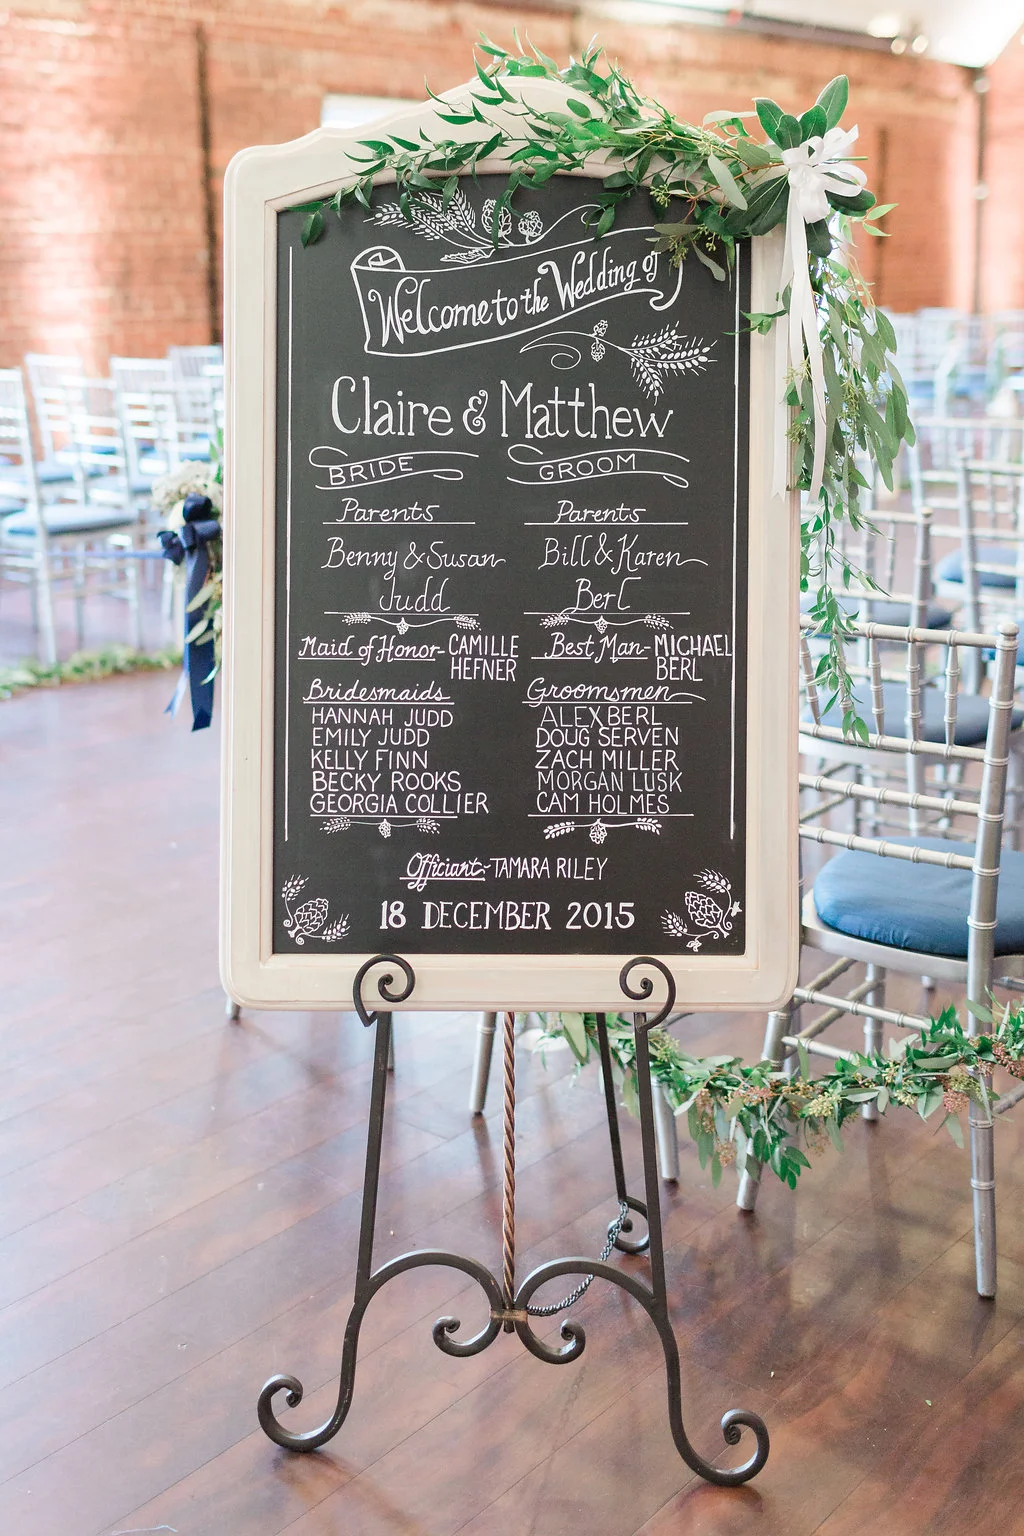 Welcome to the Wedding of
Claire & Matthew
BRIDE
Parents
Benny & Susan
Judd
Maid of Honor- CAMILLE
HEFNER
Bridesmaids
HANNAH JUDD
EMILY JUDD
KELLY FINN
BECKY ROOKS
GEORGIA COLLIER
GROOM
Parents
Bill & Karen
Berl
Best Man- MICHAEL
BERL
Groomsmen
ALEX BERL
DOUG SERVEN
ZACH MILLER
MORGAN LUSK
CAM HOLMES
Officiant:- TAMARA RILEY
18 DECEMBER 2015